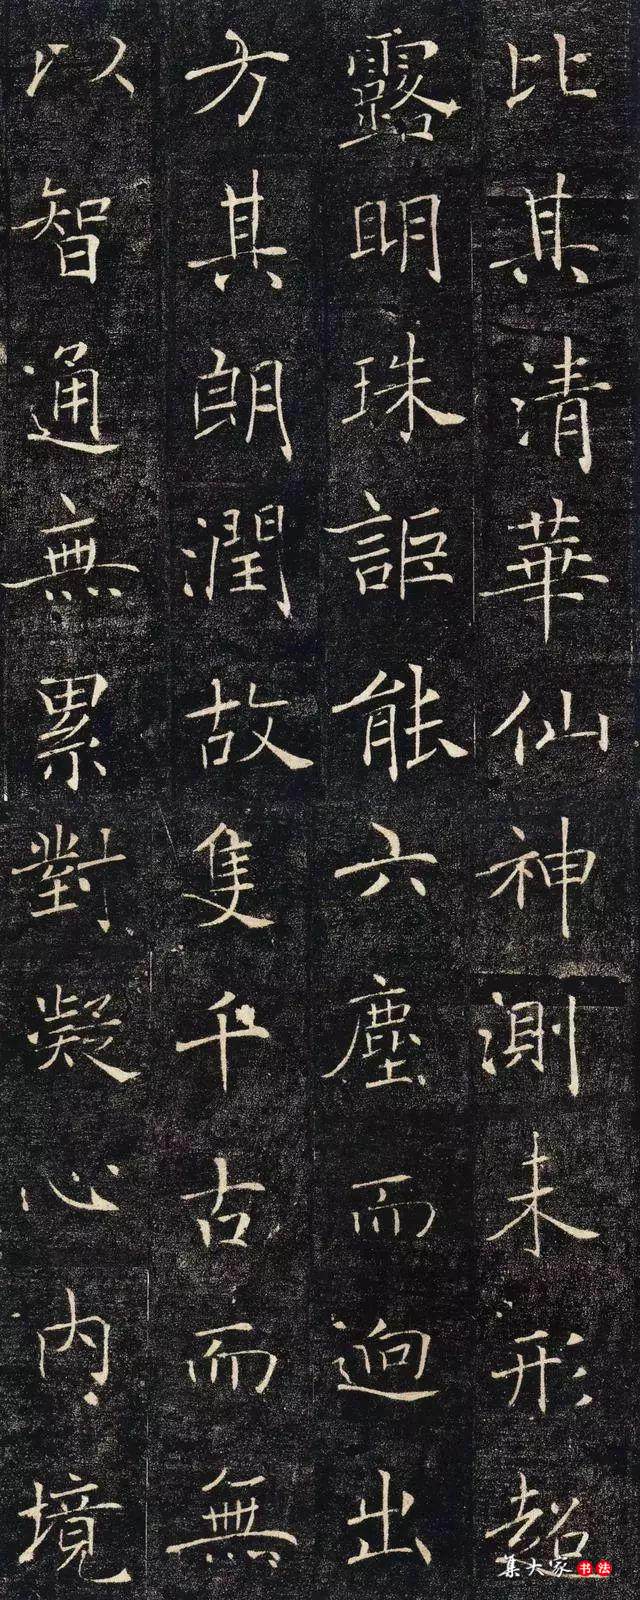 比其清華仙
露明珠詎能
方其朗潤故
以智通無累
神測未形超
六塵而逈出
隻千古而無
對凝心内境
集大家书法